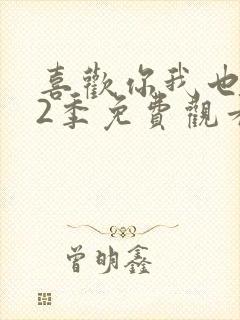 喜歡你我也
2季免費觀
曾明鑫